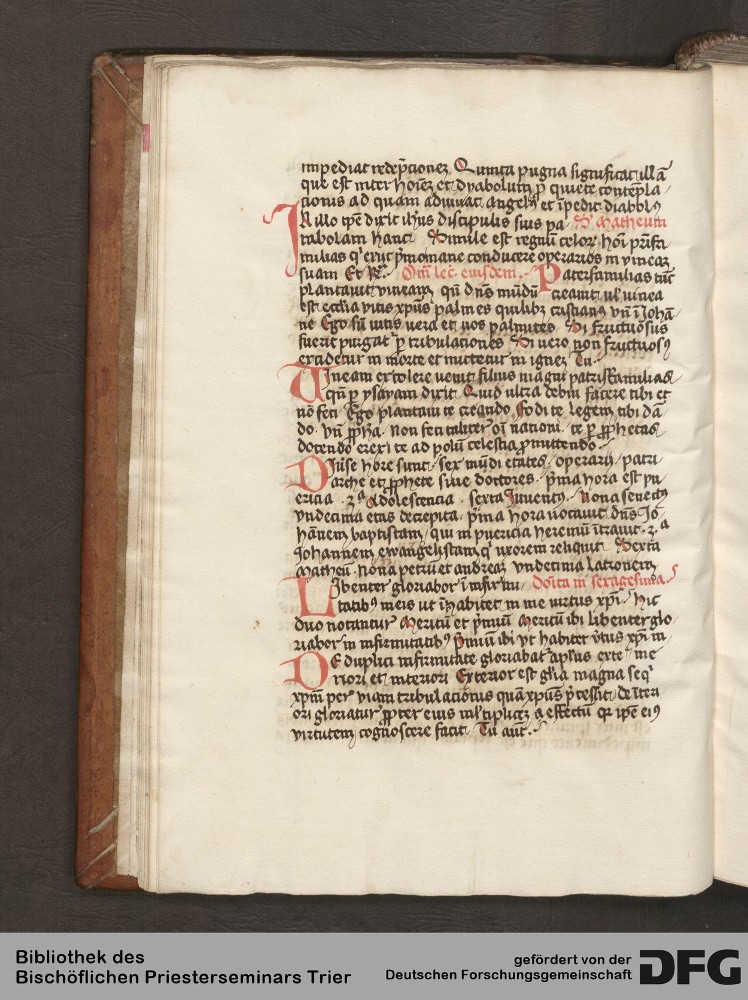 impediat redēpcionez Quinta pugna significat illā
que est inter hoīez et dyabolum ꝑ quiete contēpla
cionis ad quam adiuuat angelꝰ et īpedit diabblꝰ
In illo tꝑe dixit ihūs discipulis suis pa S' Matheum
rabolam hanc Simile est regnū celoꝝ hoī pr̄fa
milias q' exiit p'mo mane conducere operarios in vineaz
suam Et Rꝰ Om̄ lec eiusdem Paterfamilias tūc
plantauit vineam qn̄ dn̄s mūdū creauit ul' vinea
est eccl'ia vitis xp̄us palmes quilibꝫ cristianꝰ vn̄ ī Johā
ne Ego sū vitis vera et uos palmites Si fructuosus
fuerit purgat' ꝑ tribulaciones Si uero non fructuosꝰ
excidetur in morte et mittetur in ignez Tu
Vineam excolere uenit filius magni patrisfamilias
qn̄ ꝑ ysayam dixit Quid ultra debui facere tibi et
nō feci Ego plantaui te creando fodi te legem tibi dā
do vn̄ ꝓph̄a Non fecit taliter oī nationi te ꝑ ꝓphetas
docendo erexi te ad polū celestia ꝓmittendo
Diuise hore sunt sex mūdi etates operarij patri
arche et ꝓphete siue doctores p'ma hora est pu
ericia 2ᵃ Adolescencia sexta Iuuentꝰ Nona senectꝰ
vndecima etas decrepita p'ma hora uocauit dn̄s Jo
hānem baptistam qui in puericia heremū ītrauit 2ᵃ
Johannem ewangelistam q' uxorem reliquit Sexta
Matheū Nona petrū et andreaz vndecima latronem
Libenter gloriabor ī infirmi Doīca in sexagesima
tatibꝰ meis ut īhabitet in me virtus xp̄i Hic
duo notantur Meritū et p'miū Meritū ibi libenter glo
riabor in infirmitatibꝰ p'miū ibi vt habitet v'tus xp̄i in
De duplici infirmitate gloriabat' ap̄lus exte me
riori et interiori Exterior est gl'ia magna seq'
xpm̄ per viam tribulacionis quā xp̄us p'cessit de īteri
ori gloriatur ꝓpter eius ml'tiplicez effectū qꝛ ip̄e eiꝰ
virtutem cognoscere facit Tu aut'
Bibliothek des
Bischöflichen Priesterseminars Trier
gefördert von der
Deutschen Forschungsgemeinschaft
DFG